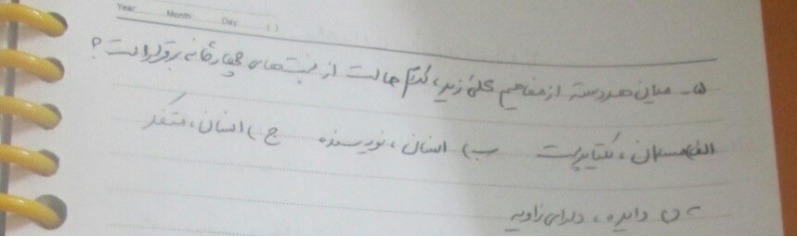 Year Month Day ( )
۵- میان هر دسته از مفاهیم کلی زیر، کدام حالت از نسبت‌های چهارگانه برقرار است؟
الف) مسلمان، یکتاپرست ب) انسان، نویسنده ج) انسان، متفکر
ت) دایره، دارای زاویه